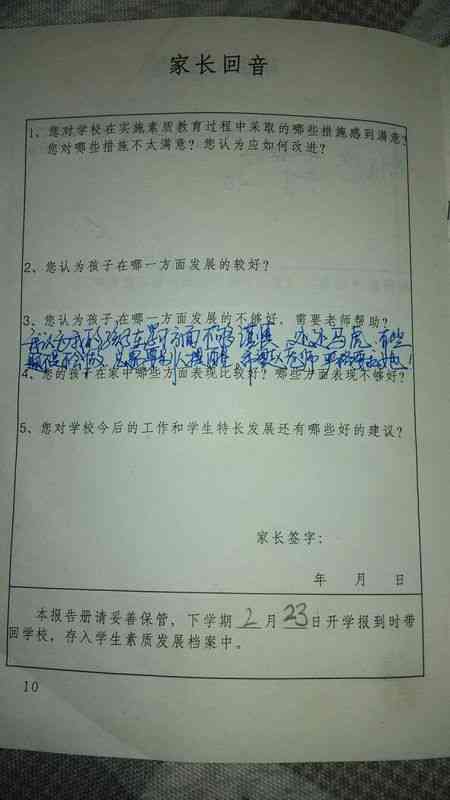 家长回音
1、您对学校在实施素质教育过程中采取的哪些措施感到满意?
您对哪些措施不太满意?您认为应如何改进?
2、您认为孩子在哪一方面发展的较好?
3、您认为孩子在哪一方面发展的不够好,需要老师帮助?
我认为我的孩子在学习方面不够谨慎,还还马虎,有些
题还不会做,
4、您的孩子在家中哪些方面表现比较好?哪些方面表现不够好?
5、您对学校今后的工作和学生特长发展还有哪些好的建议?
家长签字:
年 月 日
本报告册请妥善保管,下学期2月23日开学报到时带
回学校,存入学生素质发展档案中。
10